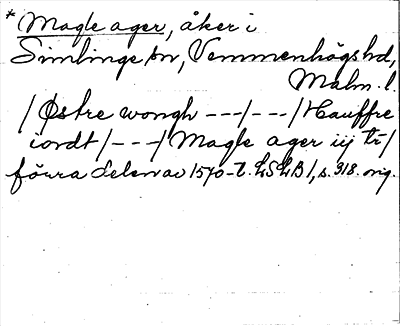 * Magle ager, åker i
Simlinge sn, Vemmenhögs hd,
Malm. l.
/Østre wongh ---/---/Hauffre
iordt/---/Magle ager iij tr/
förra delen av 1570-t. LSLB 1, s. 318. orig.